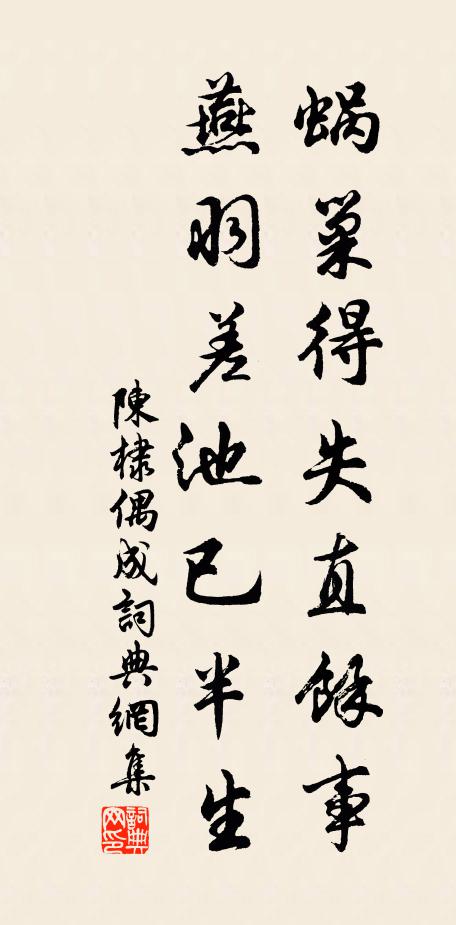 蝸巢得失直餘事
燕羽差池已半生
陳棣偶成詞典網集
詞典網印